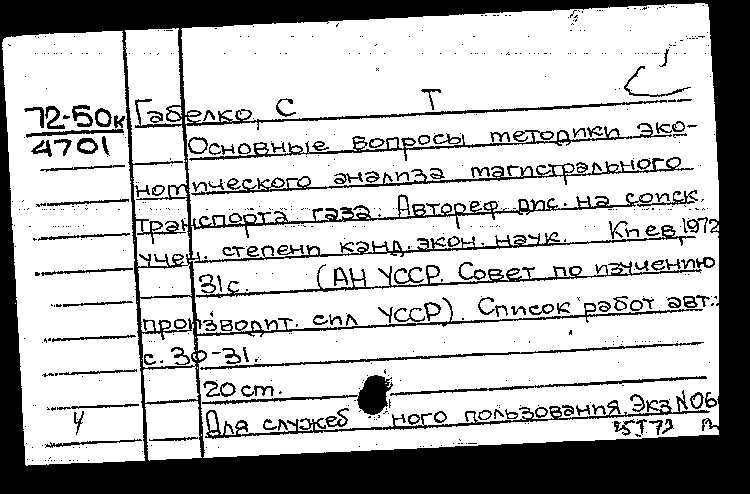 72-50к Габелко, С Т
4701 Основные вопросы методики эко-
номического анализа магистрального
транспорта газа. Автореф. дис. на соиск.
учен. степени канд. экон. наук. Киев, 1972
31с. (АН УССР. Совет по изучению
производит. сил УССР). Список работ авт.:
с. 30-31.
20 cm.
4 Для служебного пользования. Экз N 06